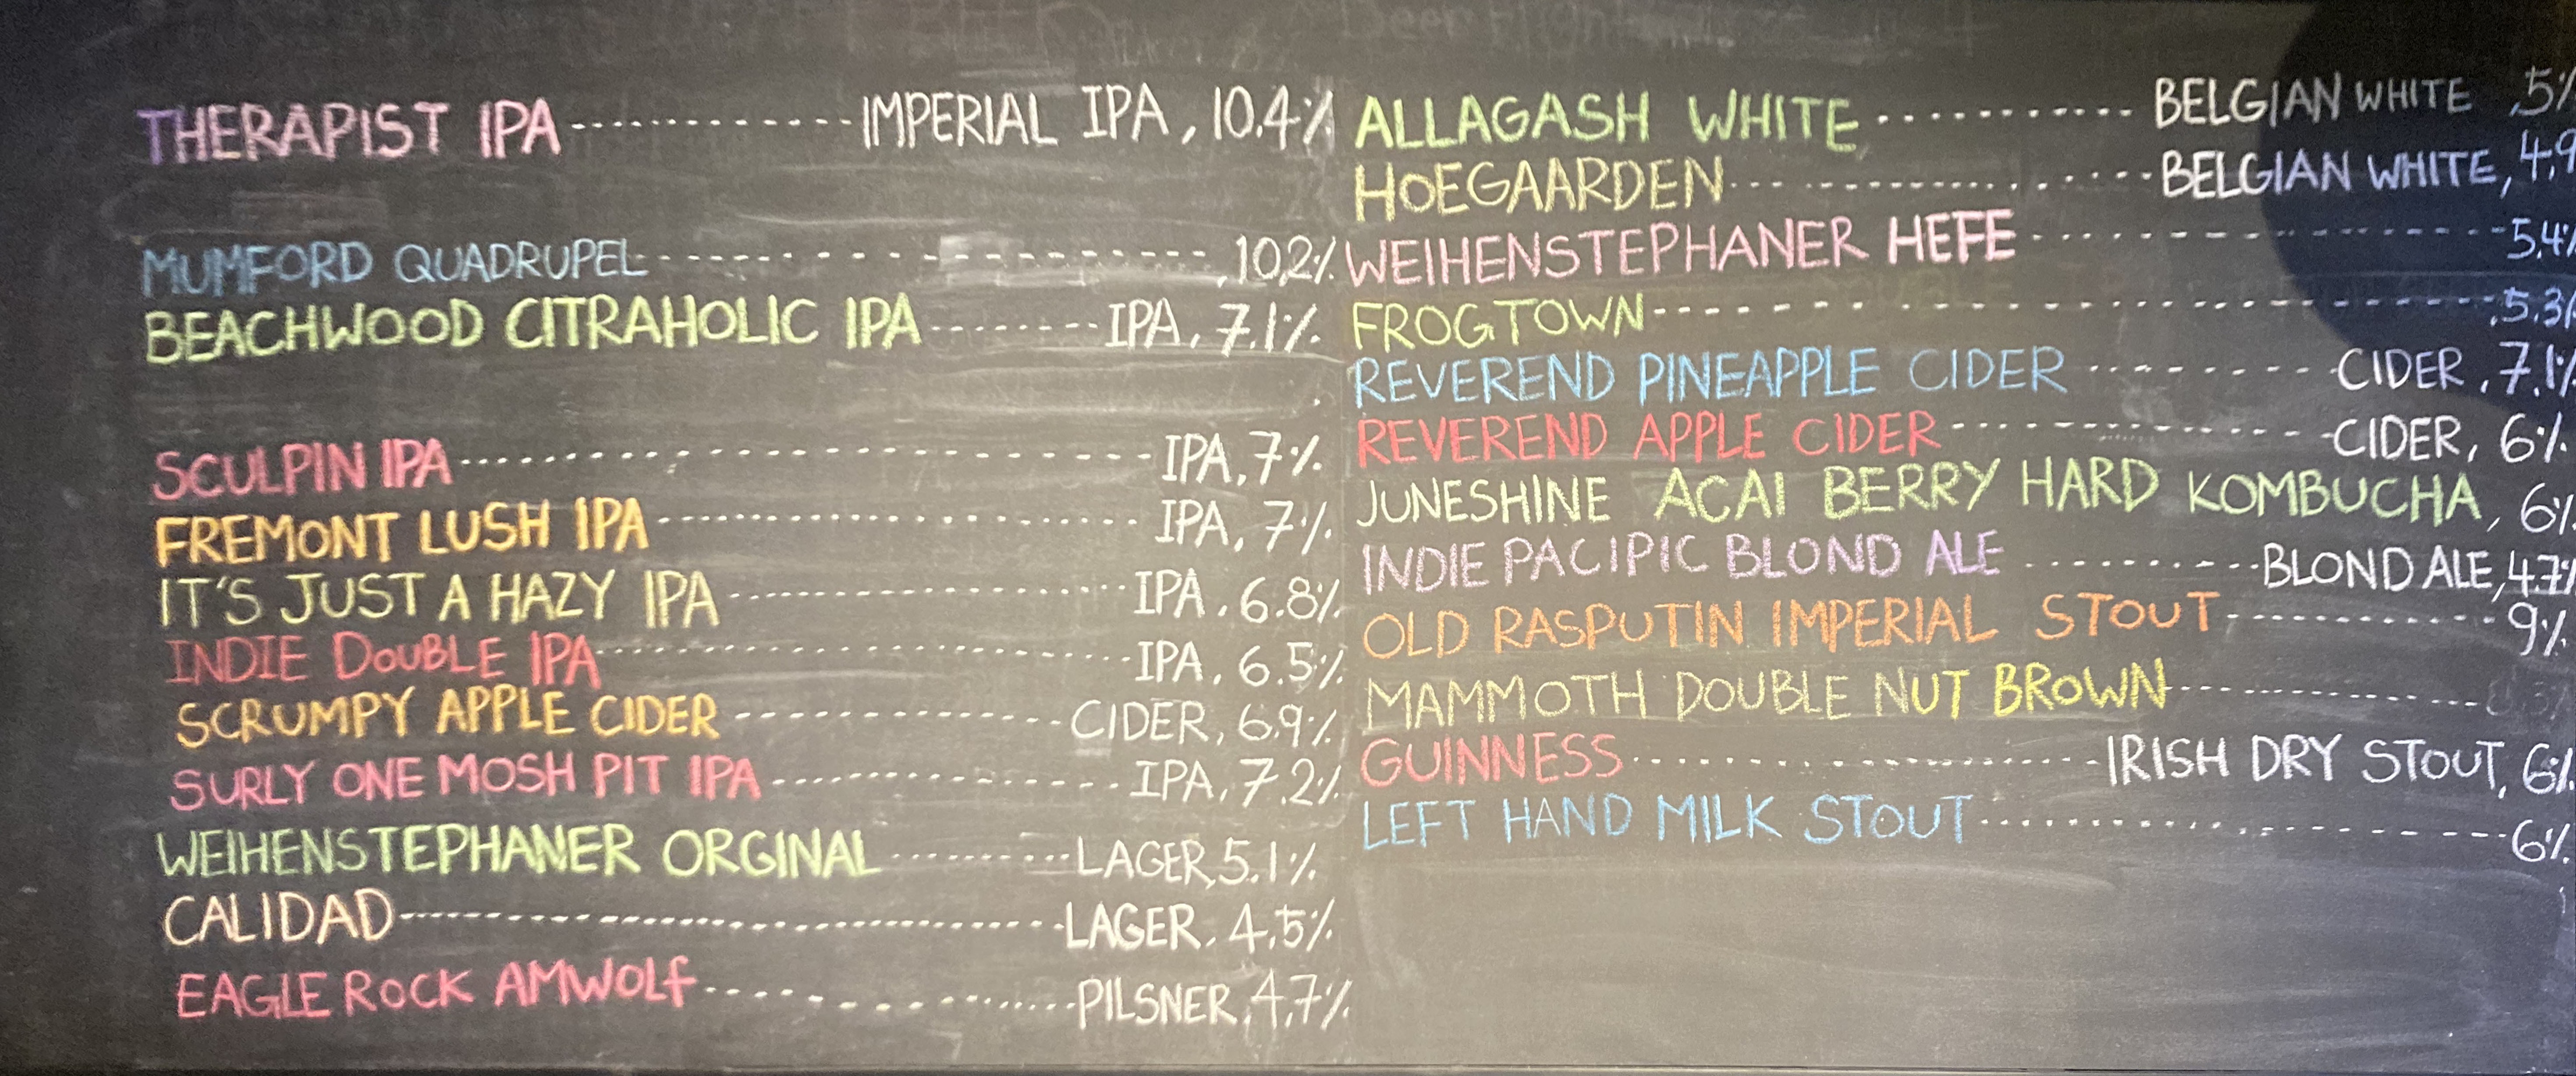 THERAPIST IPA IMPERIAL IPA, 10.4%
MUMFORD QUADRUPEL 10.2%
BEACHWOOD CITRAHOLIC IPA IPA, 7.1%
SCULPIN IPA IPA, 7%
FREMONT LUSH IPA IPA, 7%
IT'S JUST A HAZY IPA IPA, 6.8%
INDIE DOUBLE IPA IPA, 6.5%
SCRUMPY APPLE CIDER CIDER, 6.9%
SURLY ONE MOSH PIT IPA IPA, 7.2%
WEIHENSTEPHANER ORGINAL LAGER, 5.1%
CALIDAD LAGER, 4.5%
EAGLE ROCK AMWOLF PILSNER, 4.7%
ALLAGASH WHITE BELGIAN WHITE, 5%
HOEGAARDEN BELGIAN WHITE, 4.9
WEIHENSTEPHANER HEFE 5.4%
FROGTOWN 5.3%
REVEREND PINEAPPLE CIDER CIDER, 7.1%
REVEREND APPLE CIDER CIDER, 6%
JUNESHINE ACAI BERRY HARD KOMBUCHA, 6%
INDIE PACIFIC BLOND ALE BLOND ALE, 4.7%
OLD RASPUTIN IMPERIAL STOUT 9%
MAMMOTH DOUBLE NUT BROWN
GUINNESS IRISH DRY STOUT, 6%
LEFT HAND MILK STOUT 6%